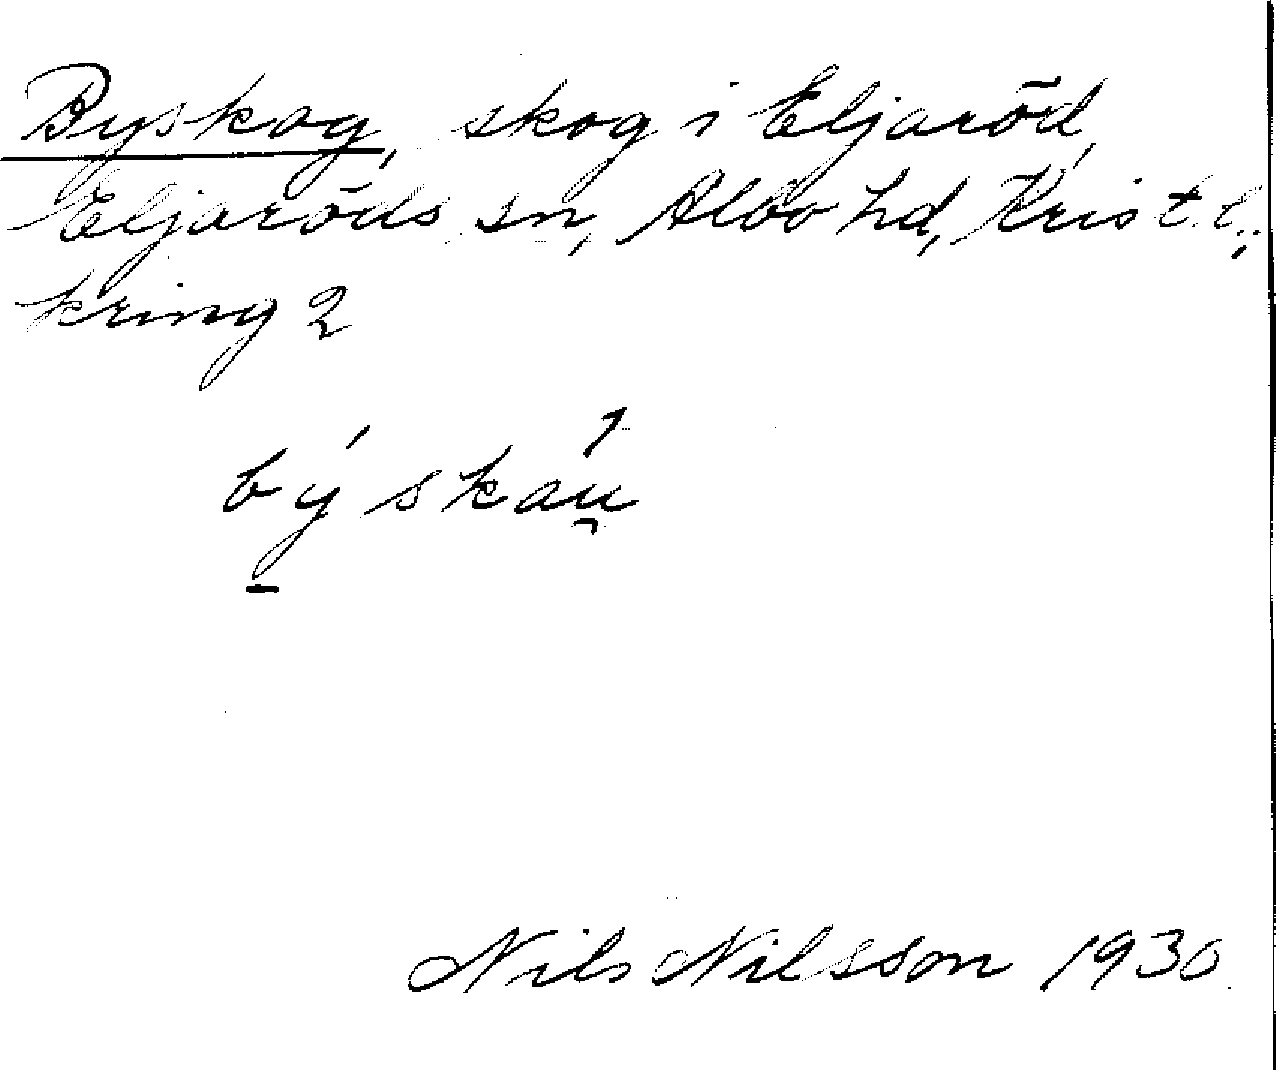 Byskog, skog i Eljaröd,
Eljaröds sn, Albo hd, Krist.l.,
kring 2
bý̱skau̯
Nils Nilsson 1930.